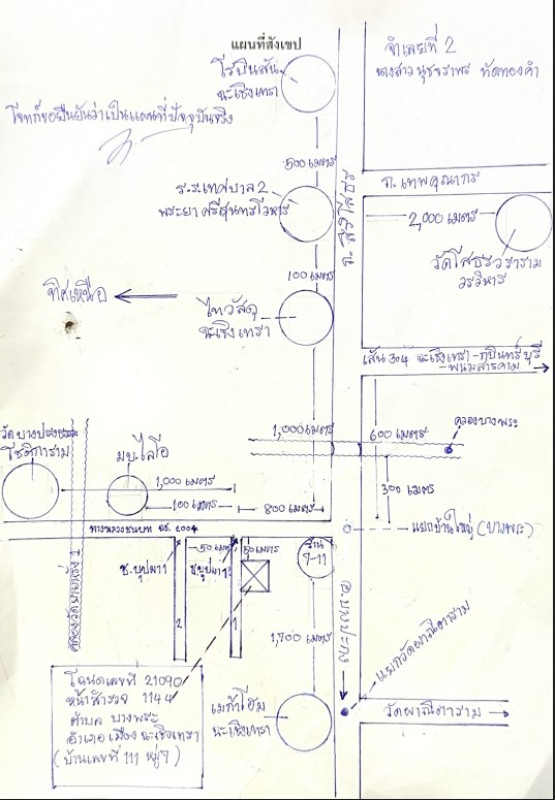 แผนที่สังเขป
จำเลยที่ 2
นางสาว นุชจราพร ทัดทองคำ
โรบินสัน
ฉะเชิงเทรา
โจทก์ขอยืนยันว่าเป็นแผนที่ปัจจุบันจริง
500 เมตร
ถ. สิริโสธร
ถ. เทพคุณากร
ร.ร.เทศบาล 2
พระยาศรีสุนทรโวหาร
2,000 เมตร
วัดโสธรวราราม
วรวิหาร
100 เมตร
ทิศเหนือ
ไทวัสดุ
ฉะเชิงเทรา
เส้น 304 ฉะเชิงเทรา-กบินทร์บุรี
-พนมสารคาม
1,000 เมตร
600 เมตร
คลองบางพระ
โชติการาม
มบ.ไลโอ
1,000 เมตร
100 เมตร
800 เมตร
300 เมตร
แยกบ้านใหญ่ (บางพระ)
ทางหลวงชนบท ฉช. 2004
50 เมตร
50 เมตร
ร้าน
7-11
2
1
1,700 เมตร
อ.บางปะกง
แยกวัดผาณิตาราม
โฉนดเลขที่ 21090
หน้าสำรวจ 1144
ตำบล บางพระ
อำเภอเมืองฉะเชิงเทรา
(บ้านเลขที่ 111 หมู่ 7)
เมก้าโฮม
ฉะเชิงเทรา
วัดผาณิตาราม